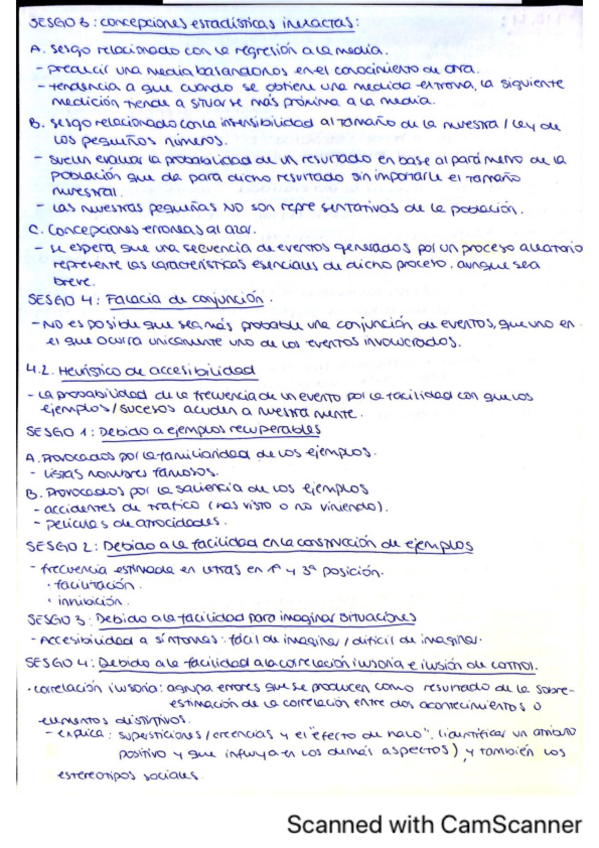 SESGO 3: concepciones estadísticas inexactas:
A. Sesgo relacionado con la regresión a la media.
- predecir una media basandonos en el conocimiento de otra.
- tendencia a que cuando se obtiene una medida extrema, la siguiente
medición tiende a situarse más próxima a la media.
B. sesgo relacionado con la insensibilidad al tamaño de la muestra / Ley de
los pequeños números.
- suelen evaluar la probabilidad de un resultado en base al parámetro de la
población que da para dicho resultado sin importarle el tamaño
muestral.
- Las muestras pequeñas NO son representativas de la población.
C. Concepciones erroneas al azar.
- se espera que una secuencia de eventos generados por un proceso aleatorio
represente las características esenciales de dicho proceso, aunque sea
breve.
SESGO 4: Falacia de conjunción.
- NO es posible que sea más probable una conjunción de eventos, que uno en
el que ocurra unicamente uno de los eventos involucrados.
4.2. Heurístico de accesibilidad
- La probabilidad de la frecuencia de un evento por la facilidad con que los
ejemplos/sucesos acuden a nuestra mente.
SESGO 1: Debido a ejemplos recuperables
A. Provocados por la familiaridad de los ejemplos.
- Listas nombres famosos.
B. Provocados por la saliencia de los ejemplos
- accidentes de trafico (has visto o no viniendo).
- peliculas de atrocidades.
SESGO 2: Debido a la facilidad en la construcción de ejemplos
- frecuencia estimada en letras en 1ª y 3ª posición.
· facilitación.
· inhibición.
SESGO 3: Debido a la facilidad para imaginar situaciones
- Accesibilidad a síntomas: fácil de imaginar / difícil de imaginar.
SESGO 4: Debido a la facilidad a la correlación ilusoria e ilusión de control.
· correlación ilusoria: agrupa errores que se producen como resultado de la sobre-
estimación de la correlación entre dos acontecimientos o
elementos distintivos.
- explica: supersticiones/creencias y el "efecto de halo", (identificar un atributo
positivo y que influya en los demás aspectos) y también los
estereotipos sociales.
Scanned with CamScanner